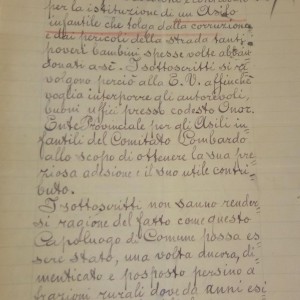 per la istituzione di un Asilo
infantile che tolga dalla corruzione
e dai pericoli della strada tanti
poveri bambini spesse volte abban
donati a sè. I sottoscritti si ri
volgono perciò alla E. V. affinchè
voglia interporre gli autorevoli,
buoni uffici presso codesto Onor.
Ente Provinciale per gli Asili in
fantili del Comitato Lombardo
allo scopo di ottenere la sua pre
ziosa adesione e il suo utile contri
buto.
I sottoscritti non sanno render
si ragione del fatto come questo
Capoluogo di Comune possa es
sere stato, una volta ancora, di
menticato e posposto persino a
frazioni rurali dove da anni esi